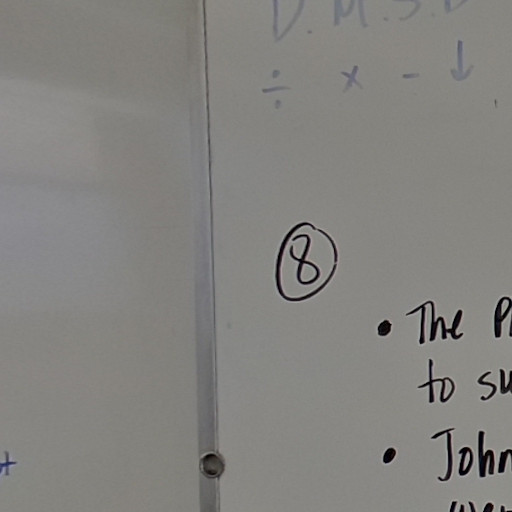 D.M.S.B
÷ × - ↓
8
• The
to
• John